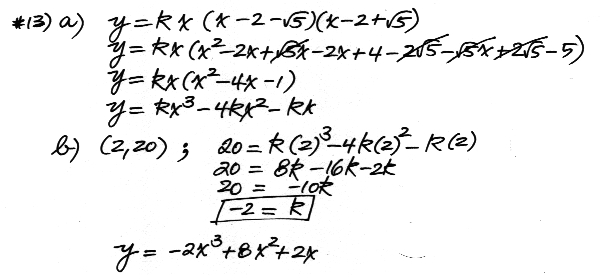 #13) a) y = kx (x-2-√5)(x-2+√5)
y = kx (x²-2x+√5x-2x+4-2√5-√5x+2√5-5)
y = kx (x²-4x-1)
y = kx³-4kx²-kx
b) (2,20) ; 20 = k(2)³-4k(2)²-k(2)
20 = 8k-16k-2k
20 = -10k
-2 = k
y = -2x³+8x²+2x